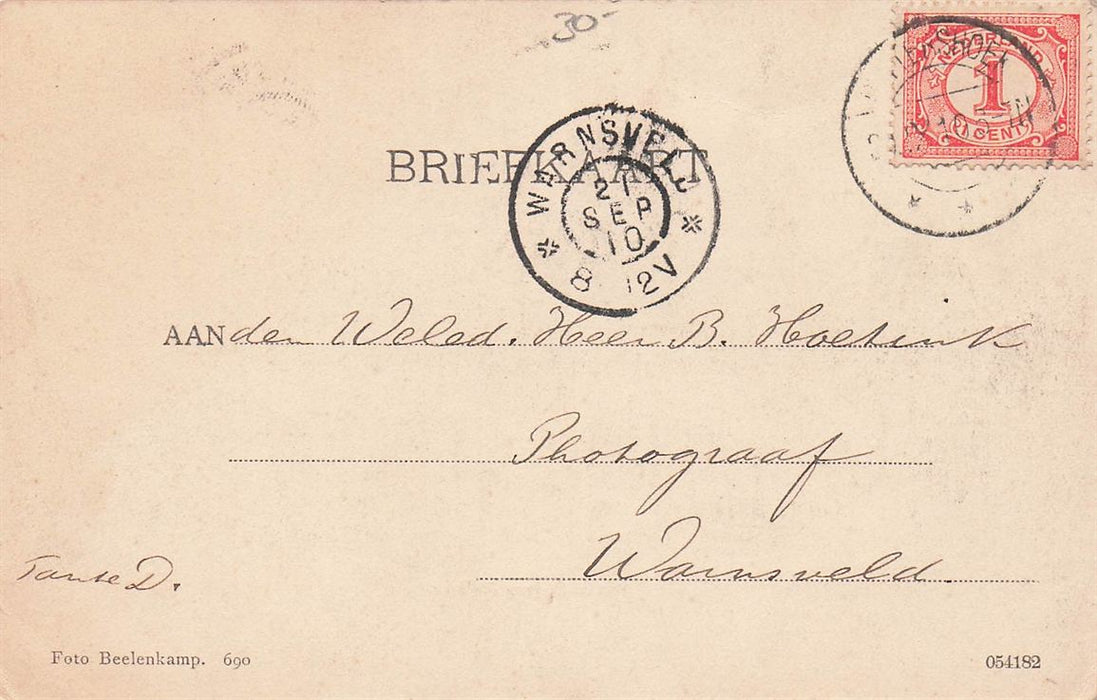 30-
NEDERLAND
1
(1 CENT)
BRIEFKAART
WARNSVELD
21
SEP
10
8 12V
AAN den Weled. Heer B. Hoetink
Photograaf
Warnsveld.
Tante D.
Foto Beelenkamp. 690
054182